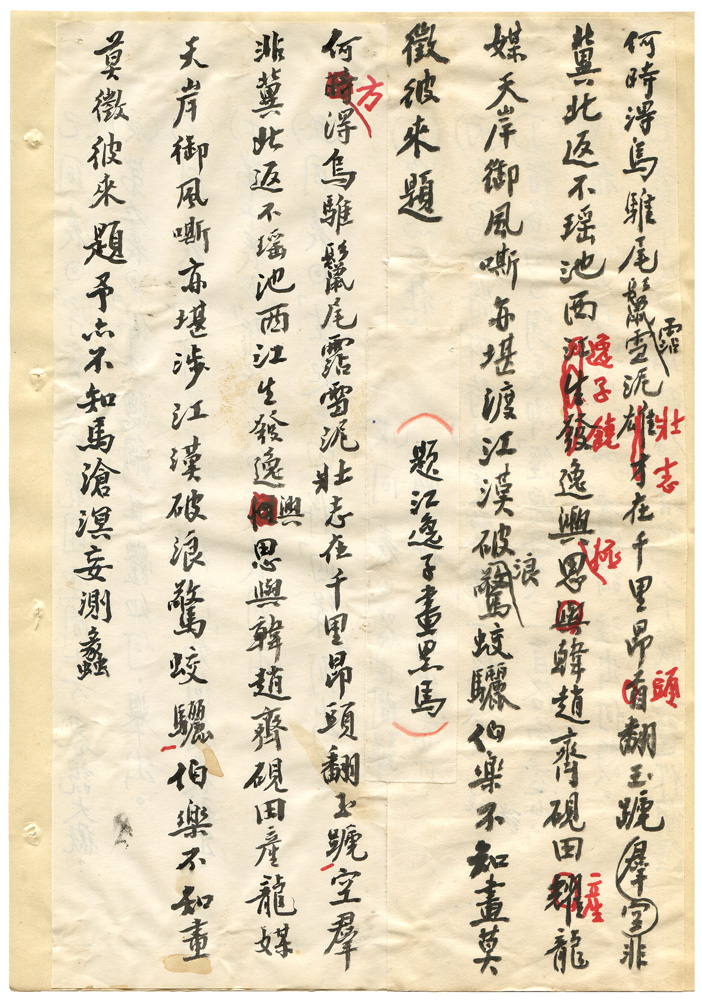 何時淂烏騅尾鬣雪泥雄才在千里昂首翻玉蹏羣空非
霑
壯志
頭
冀北返不瑶池西江生發逸興思與韓趙齊硯田耀龍
逸子饒
極
產
媒天岸御風嘶亦堪渡江漢破驚蛟驪伯樂不知畫莫
浪
徵彼來題
（題江逸子畫黑馬）
何時淂烏騅鬣尾霑雪泥壯志在千里昂頭翻玉蹏空羣
方
非冀北返不瑶池西江生發逸思與韓趙齊硯田產龍媒
興
天岸御風嘶亦堪涉江漢破浪驚蛟驪伯樂不知畫
莫徵彼來題予亦不知馬滄溟妄測蠡